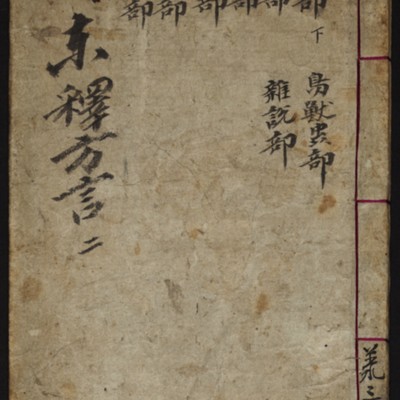 部下
部
部
部
部
部
鳥獸虫部
雜說部
東釋方言 二